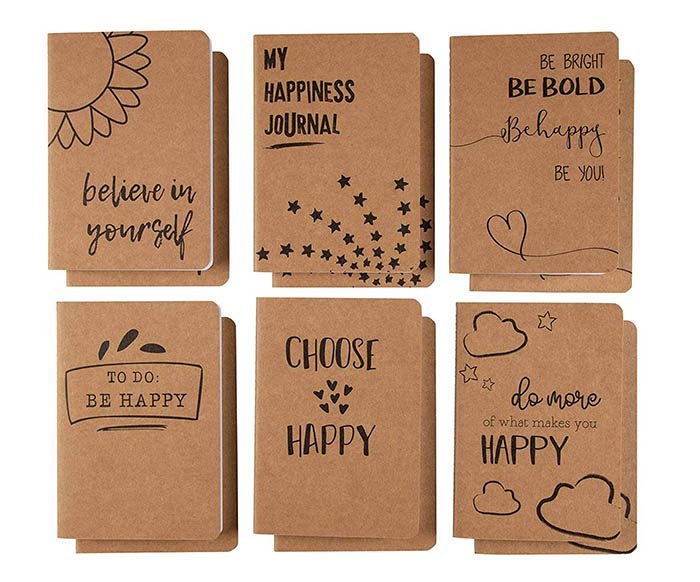 believe in
yourself
MY
HAPPINESS
JOURNAL
BE BRIGHT
BE BOLD
Be happy
BE YOU!
TO DO:
BE HAPPY
CHOOSE
HAPPY
do more
of what makes you
HAPPY